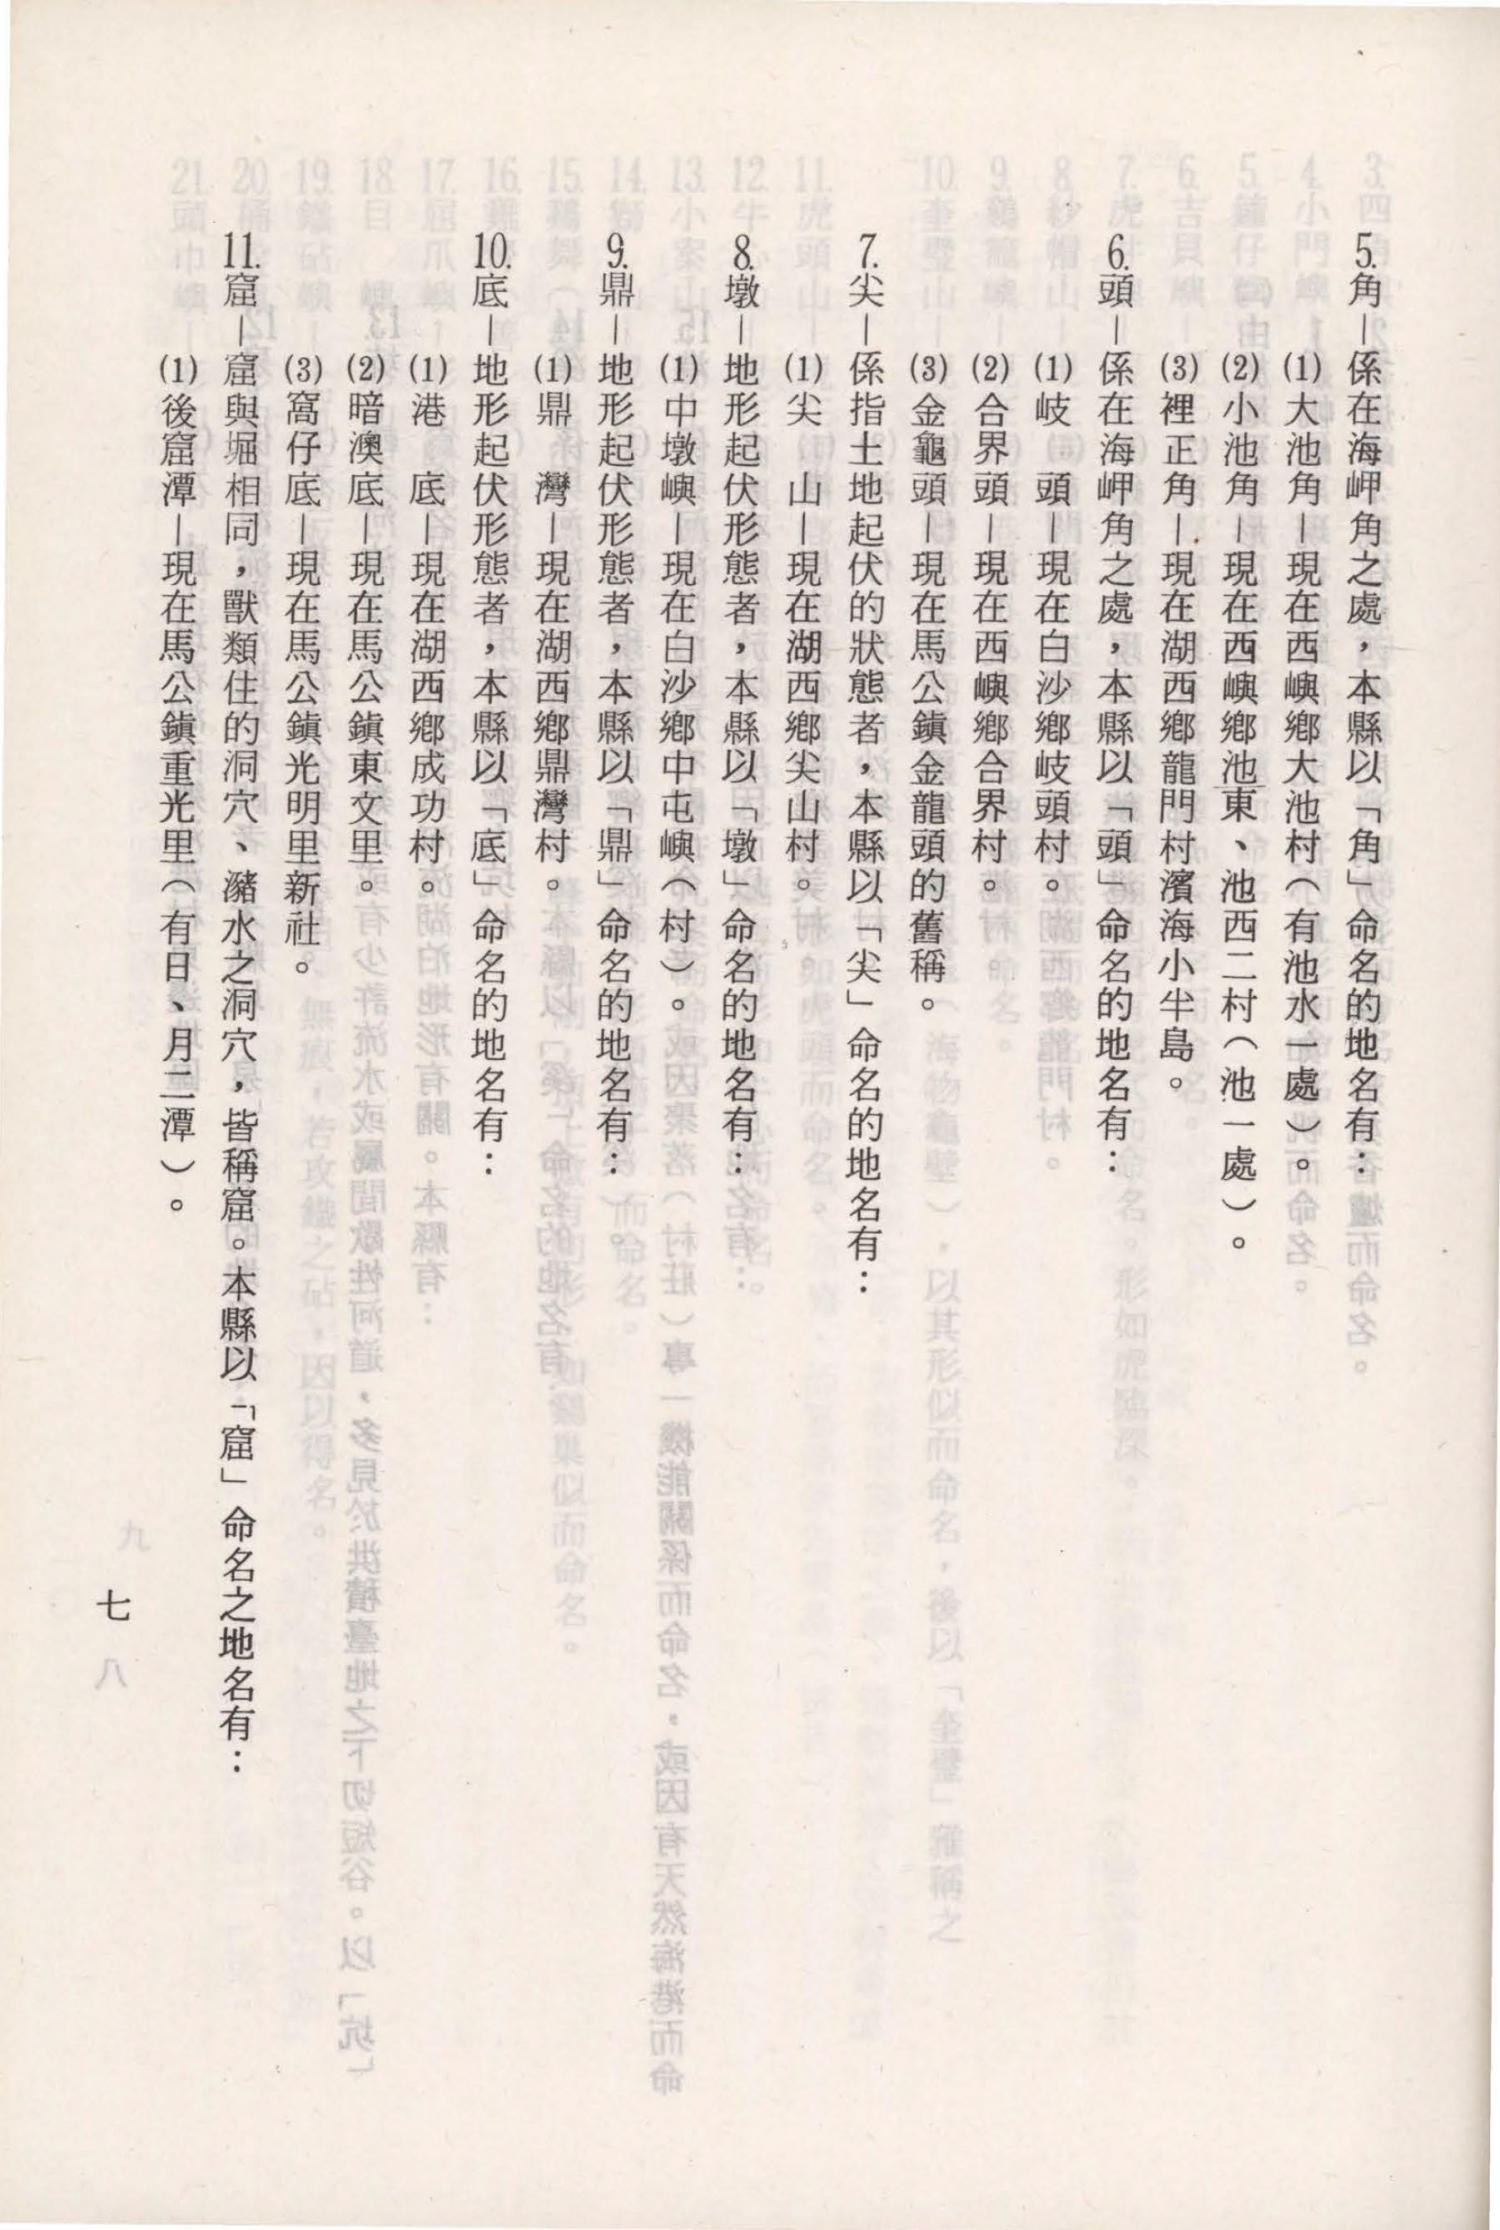 5.角—係在海岬角之處，本縣以「角」命名的地名有：
(1)大池角—現在西嶼鄉大池村（有池水一處）。
(2)小池角—現在西嶼鄉池東、池西二村（池一處）。
(3)裡正角—現在湖西鄉龍門村濱海小半島。
6.頭—係在海岬角之處，本縣以「頭」命名的地名有：
(1)岐　頭—現在白沙鄉岐頭村。
(2)合界頭—現在西嶼鄉合界村。
(3)金龜頭—現在馬公鎮金龍頭的舊稱。
7.尖—係指土地起伏的狀態者，本縣以「尖」命名的地名有：
(1)尖　山—現在湖西鄉尖山村。
8.墩—地形起伏形態者，本縣以「墩」命名的地名有：
(1)中墩嶼—現在白沙鄉中屯嶼（村）。
9.鼎—地形起伏形態者，本縣以「鼎」命名的地名有：
(1)鼎　灣—現在湖西鄉鼎灣村。
10.底—地形起伏形態者，本縣以「底」命名的地名有：
(1)港　底—現在湖西鄉成功村。
(2)暗澳底—現在馬公鎮東文里。
(3)窩仔底—現在馬公鎮光明里新社。
11.窟—窟與堀相同，獸類住的洞穴、瀦水之洞穴，皆稱窟。本縣以「窟」命名之地名有：
(1)後窟潭—現在馬公鎮重光里（有日、月二潭）。
七